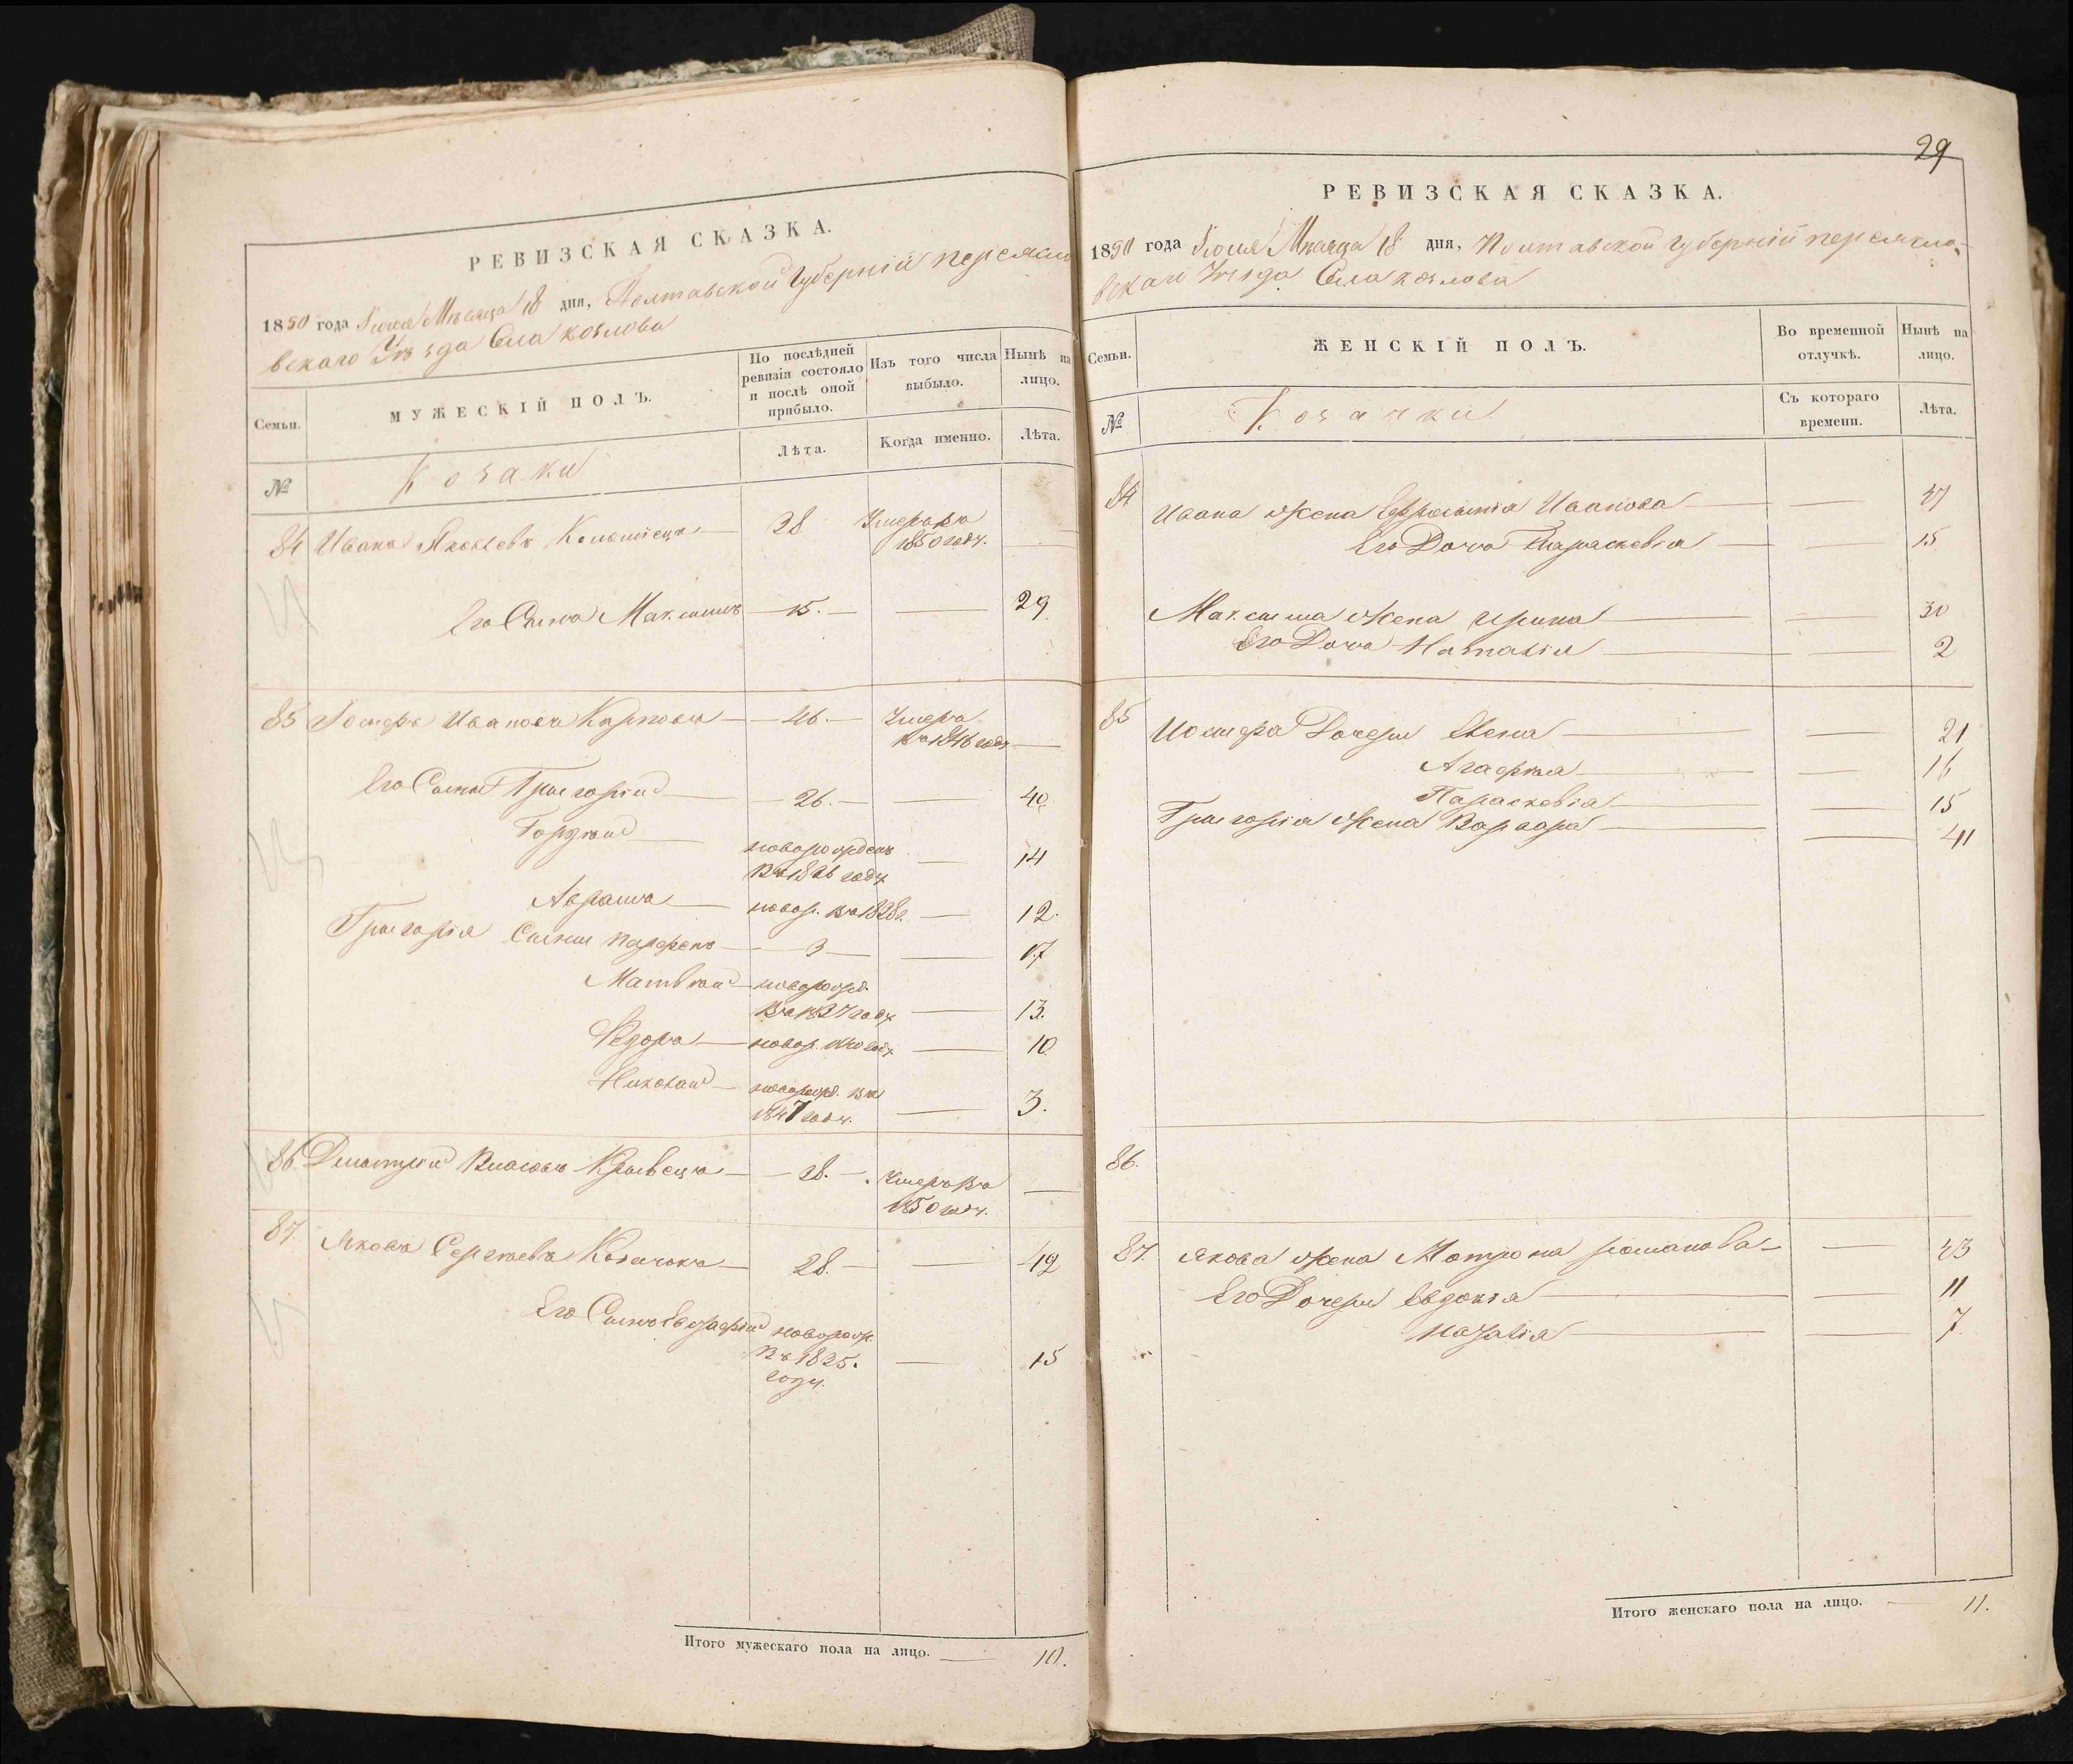 РЕВИЗСКАЯ СКАЗКА.
1850 года Іюля Мѣсяца 18 дня, Полтавской Губерніи переясла
вскаго Уѣзда Села козлова
Семьи.
МУЖЕСКІЙ ПОЛЪ.
По послѣдней ревизіи состояло и послѣ оной прибыло.
Изъ того числа выбыло.
Нынѣ на лицо.
№
Козаки
Лѣта.
Когда именно.
Лѣта.
84 Иванъ Яковлевъ 38 Умеръ въ
1850 году.
Его Сынъ Максимъ 15. 29
85 Іосифъ Ивановъ Карповъ 46. Умеръ
въ 1846 году
Его Сыны Григорій 26. 40
Гордѣй новорожденъ
въ 1836 году 14
Абрамъ новор. въ 1838г. 12.
Григорія Сыны парфенъ 3 17
Матвѣй новорожд.
въ 1837 году 13.
Федоръ новор. 1840 году 10
Николай новорожд. въ
1847 году. 3.
86 Дмитрій Власовъ Кравецъ 28. умеръ въ
1850 году.
87. Яковъ Сергѣевъ 28. 42
Его Сынъ Евграфій новорож.
въ 1835. 15
году.
Итого мужескаго пола на лицо. 10.
29
РЕВИЗСКАЯ СКАЗКА.
1850 года Іюля Мѣсяца 18 дня, Полтавской губерніи переясла-
вскаго Уѣзда Села козлова
Семьи.
ЖЕНСКІЙ ПОЛЪ.
Во временной отлучкѣ.
Нынѣ на лицо.
№
Козачки
Съ котораго времени.
Лѣта.
84 Ивана Жена Ефросинія Иванова 47
Его Дочь Параскевія 15
Максима Жена Ирина 30
Его Дочь Наталія 2
85 Иосифа Дочери Елена 21
Агафія 16
Параскевія 15
Григорія Жена Варвара 41
86.
87. Якова Жена Матрона романова 43
Его Дочери Евдокія 11
Наталія 7
Итого женскаго пола на лицо. 11.